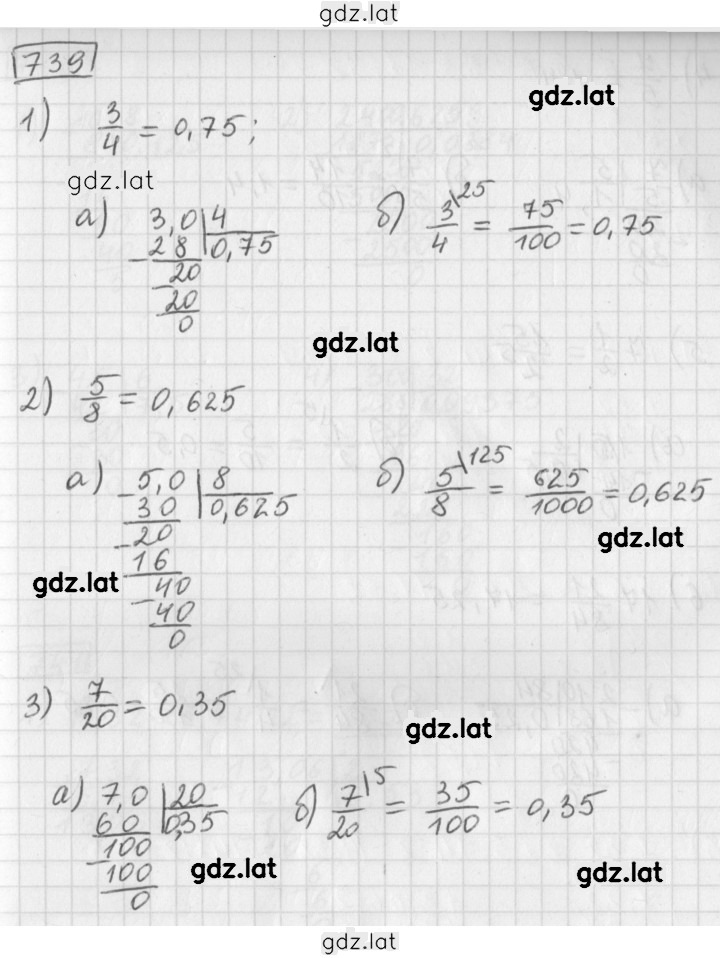 gdz.lat
739
gdz.lat
1) 3/4 = 0,75;
gdz.lat
а) 3,0 | 4 б) 3/4 \25 = 75/100 = 0,75
- 28 | 0,75
20
- 20
0
gdz.lat
2) 5/8 = 0,625
а) - 5,0 | 8 б) 5/8 \125 = 625/1000 = 0,625
30 | 0,625
- 20
gdz.lat
16
gdz.lat
- 40
40
0
3) 7/20 = 0,35
gdz.lat
а) 7,0 | 20 б) 7/20 \5 = 35/100 = 0,35
60 | 0,35
- 100
100
gdz.lat
gdz.lat
0
gdz.lat